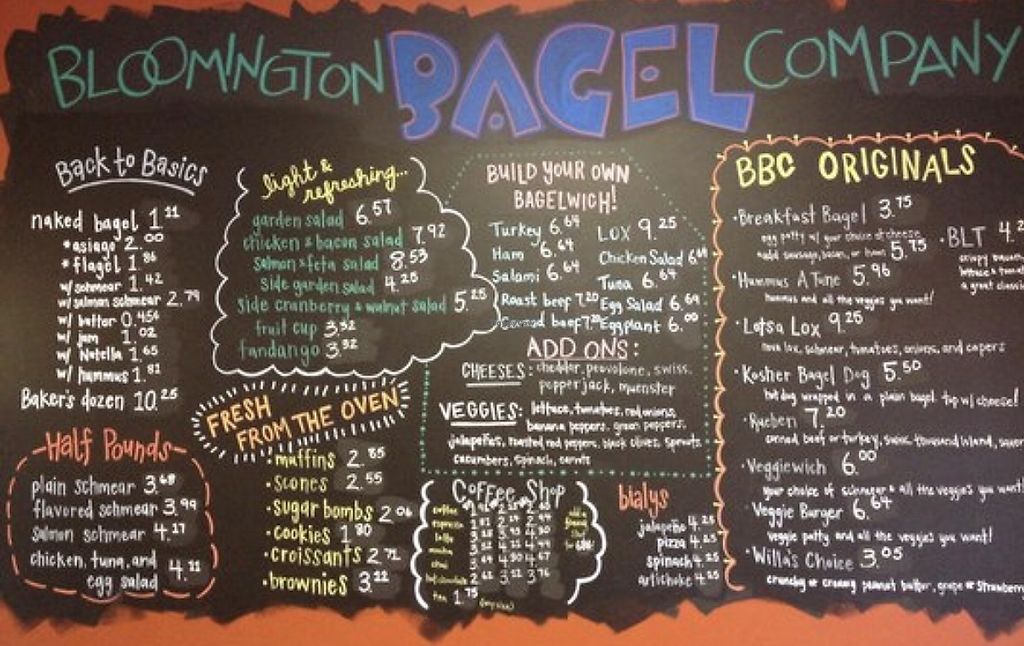 BLOOMINGTON BAGEL COMPANY
Back to Basics
naked bagel 1.21
*asiago 2.00
*flagel 1.86
w/ schmear 1.42
w/ salmon schmear 2.79
w/ butter 0.454
w/ jam 1.02
w/ Nutella 1.65
w/ hummus 1.81
Baker's dozen 10.25
Half Pounds
plain schmear 3.68
flavored schmear 3.99
salmon schmear 4.27
chicken, tuna, and
egg salad 4.11
light &
refreshing...
garden salad 6.57
chicken & bacon salad 7.92
salmon & feta salad 8.53
side garden salad 4.25
side cranberry & walnut salad 5.25
fruit cup 3.32
fandango 3.32
FRESH
FROM THE OVEN
•muffins 2.85
•scones 2.55
•sugar bombs 2.06
•cookies 1.80
•croissants 2.71
•brownies 3.22
BUILD YOUR OWN
BAGELWICH!
Turkey 6.64
Ham 6.64
Salami 6.64
Roast beef 7.20
Corned beef 7.20
LOX 9.25
Chicken Salad 6.64
Tuna 6.64
Egg Salad 6.64
Eggplant 6.00
ADD ONS:
CHEESES: cheddar, provolone, swiss,
pepperjack, muenster
VEGGIES: lettuce, tomatoes, red onions,
banana peppers, green peppers,
jalapeños, roasted red peppers, black olives, sprouts
cucumbers, spinach, carrots
Coffee Shop
coffee
espresso
latte
mocha
chai
hot chocolate
tea 1.75
bialys
jalapeño 4.25
pizza 4.25
spinach 4.25
artichoke 4.25
BBC ORIGINALS
•Breakfast Bagel 3.75
egg patty w/ your choice of cheese
add sausage, bacon, or ham 5.75
•Hummus A Tune 5.96
hummus and all the veggies you want!
•Lotsa Lox 9.25
nova lox, schmear, tomatoes, onions, and capers
•Kosher Bagel Dog 5.50
hot dog wrapped in a plain bagel top w/ cheese!
•Rueben 7.20
corned beef or turkey, swiss, thousand island,
•Veggiewich 6.00
your choice of schmear & all the veggies you want!
•Veggie Burger 6.64
veggie patty and all the veggies you want!
•Willa's Choice 3.05
crunchy or creamy peanut butter, grape or strawberry
•BLT 4.2
crispy bacon,
lettuce & tomato
a great classic